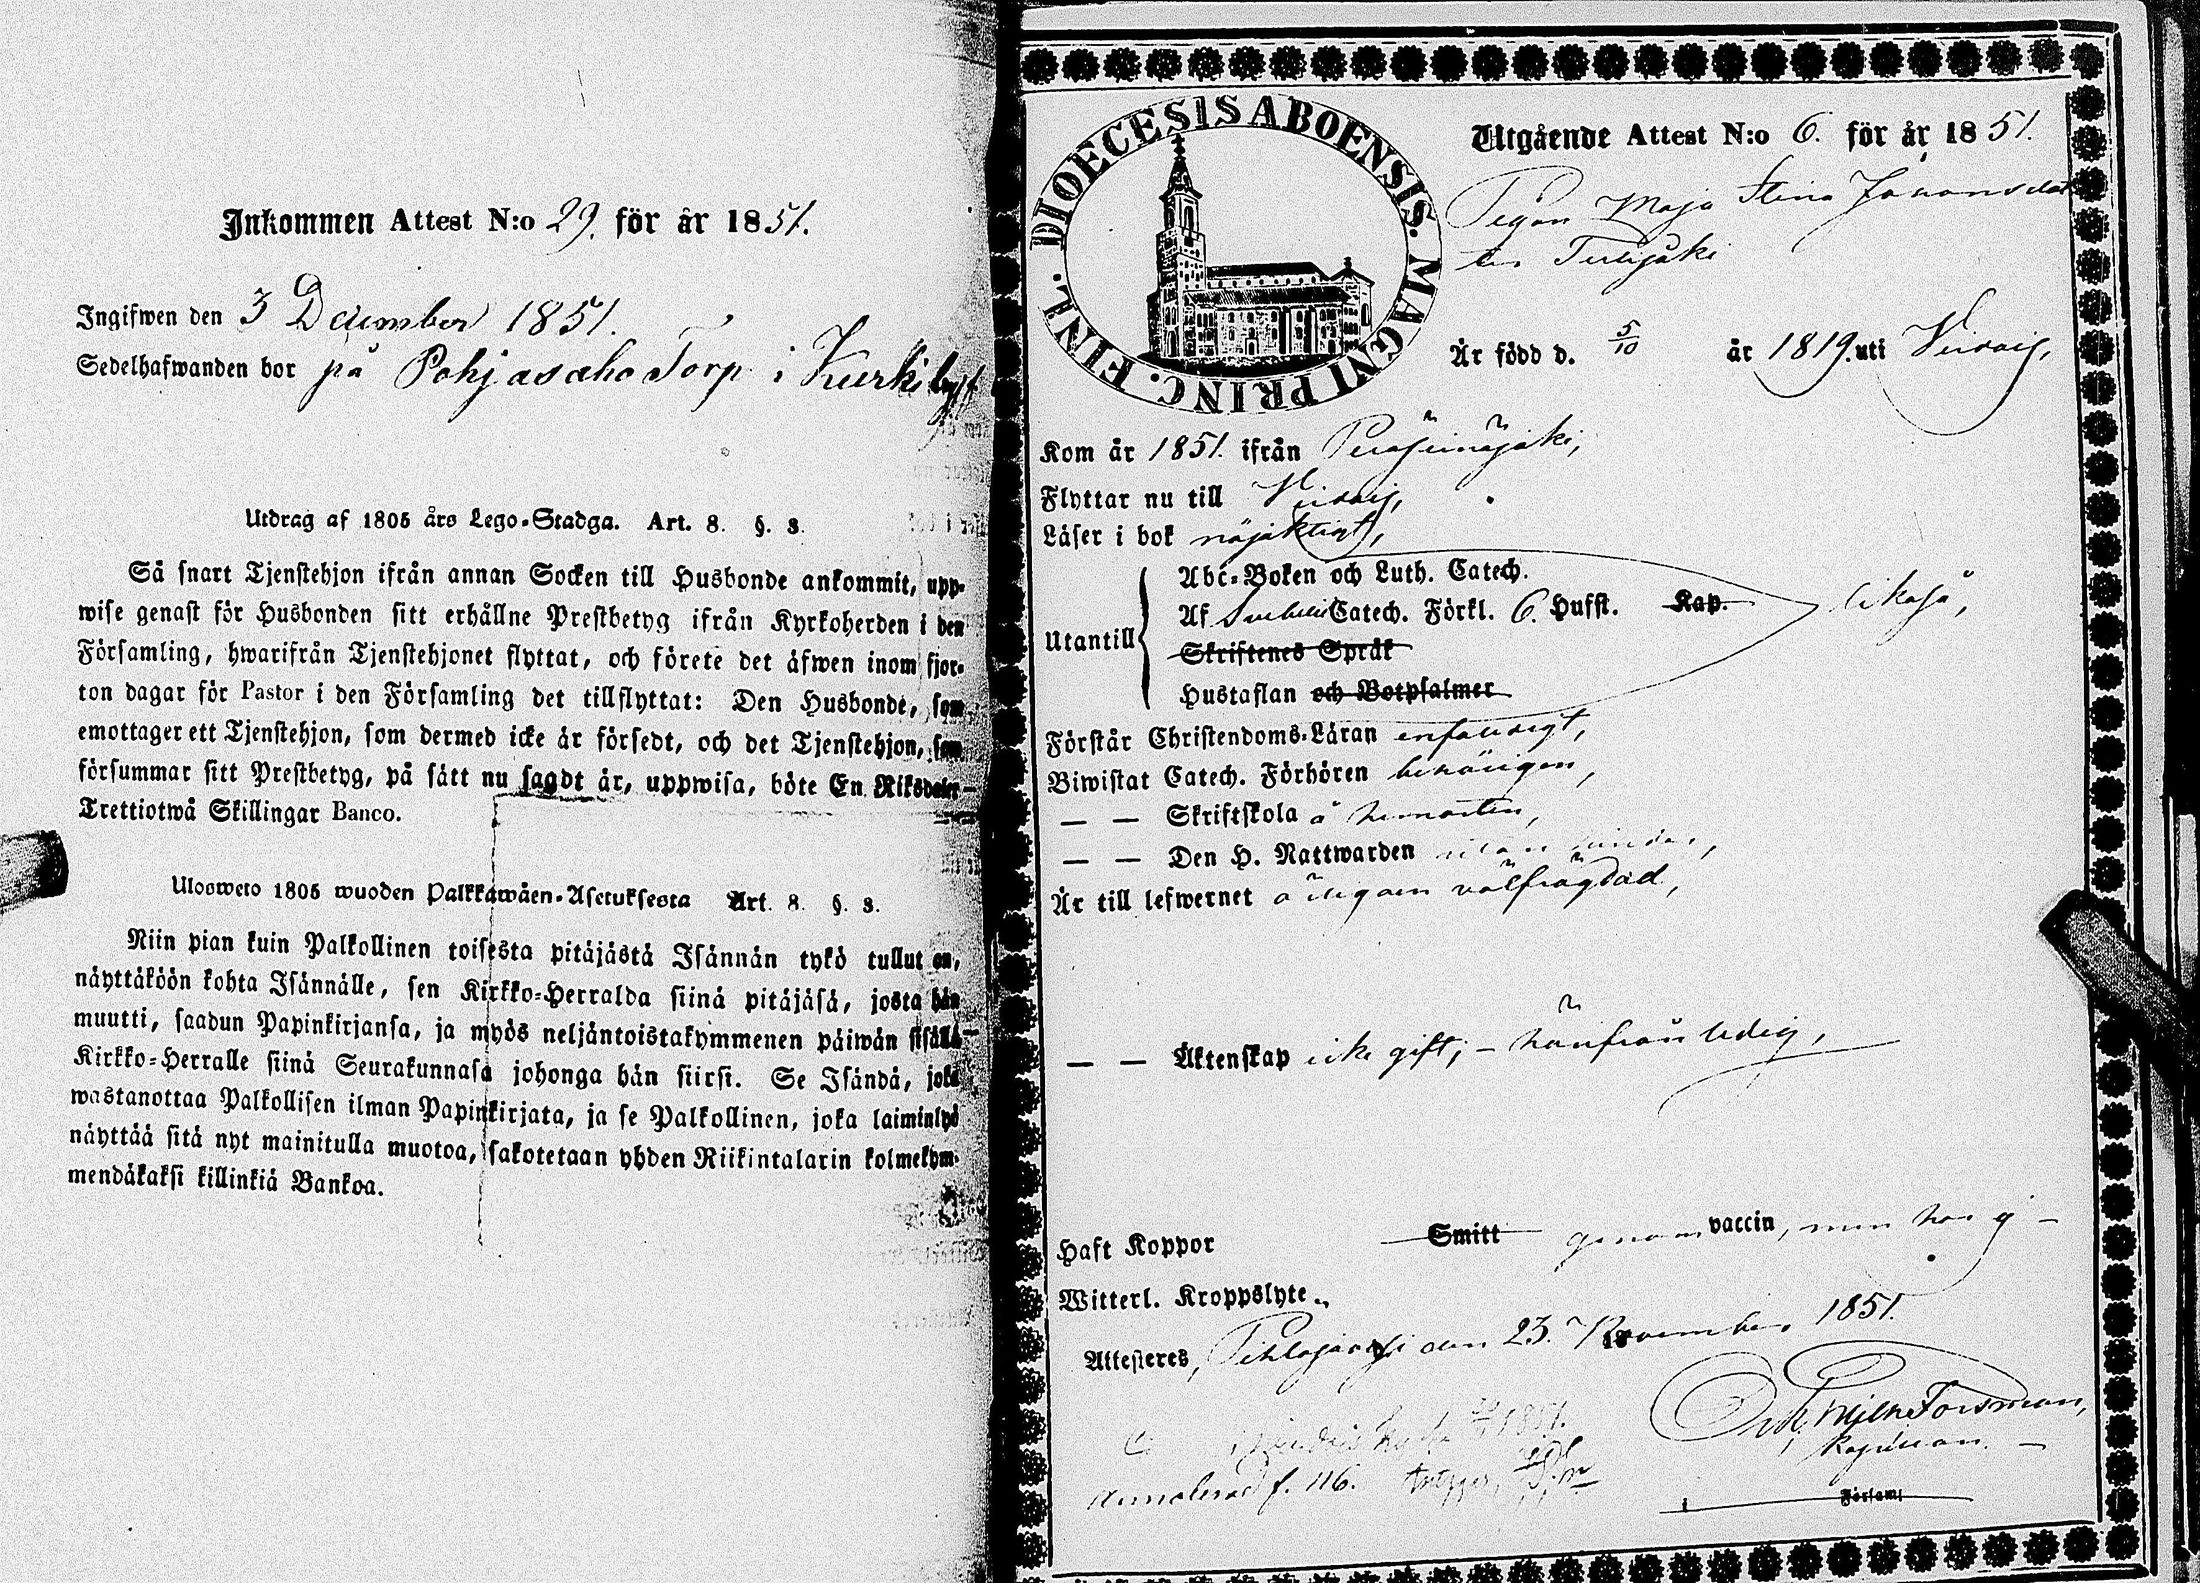 Inkommen Attest N:o 29. för år 1851.
Ingifwen den 3 December 1851.
Sedelhafwanden bor på Pohjasaho Torp i Kurki
Utdrag af 1805 års Lego-Stadga. Art. 8. §. 3.
Så snart Tjenstehjon ifrån annan Socken till Husbonde ankommit, upp-
wise genast för Husbonden sitt erhållne Prestbetyg ifrån Kyrkoherden i den
Församling, hwarifrån Tjenstehjonet flyttat, och förete det äfwen inom fjor-
ton dagar för Pastor i den Församling det tillflyttat: Den Husbonde, som
emottager ett Tjenstehjon, som dermed icke är försedt, och det Tjenstehjon, som
försummar sitt Prestbetyg, på sätt nu sagdt är, uppwisa, böte En Riksdaler
Trettiotwå Skillingar Banco.
Ulosweto 1805 wuoden Palkkawäen-Asetuksesta Art. 8. §. 3.
Niin pian kuin Palkollinen toisesta pitäjästä Isännän tykö tullut on,
näyttäköön kohta Isännälle, sen Kirkko-Herralda siinä pitäjäsä, josta hän
muutti, saadun Papinkirjansa, ja myös neljäntoistakymmenen päiwän sisällä
Kirkko-Herralle siinä Seurakunnasa johonga hän siirsi. Se Isändä, joka
wastanottaa Palkollisen ilman Papinkirjata, ja se Palkollinen, joka laiminlyö
näyttää sitä nyt mainitulla muotoa, sakotetaan yhden Riikintalarin kolmekym-
mendäkaksi killinkiä Bankoa.
DIOECESIS ABOENSIS. MAGNI PRINC. FINL.
Utgående Attest N:o 6. för år 1851.
Pigan Maja Stina Johansdot
ter
Är född d. 5/10 år 1819. uti Virdois,
Kom år 1851. ifrån Peräseinäjoki,
Flyttar nu till Virdois,
Läser i bok nöjaktigt,
Utantill
Abc-Boken och Luth. Catech.
Af Svebelii Catech. Förkl. 6. Hufst. Kap. likaså,
Skriftenes Språk
Hustaflan och Botpsalmer
Förstår Christendoms-Läran enfaldigt,
Biwistat Catech. Förhören behörigen,
— — Skriftskola å hemorten,
— — Den H. Nattwarden
Är till lefwernet välfrägdad,
— — Äktenskap icke gift, — härifrån ledig,
Haft Koppor Smitt genom vaccin, men har ej —
Witterl. Kroppslyte.
Attesteres, Pihlajavesi den 23. November 1851.
Forsman,
Kapellan. —
f. 116.
Församl